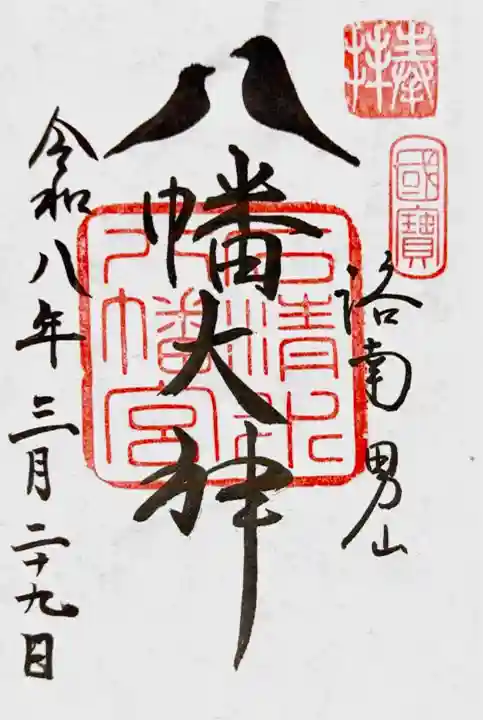 奉拝
國寶
洛南 男山
石清水
八幡宮
八幡大神
令和八年三月二十九日